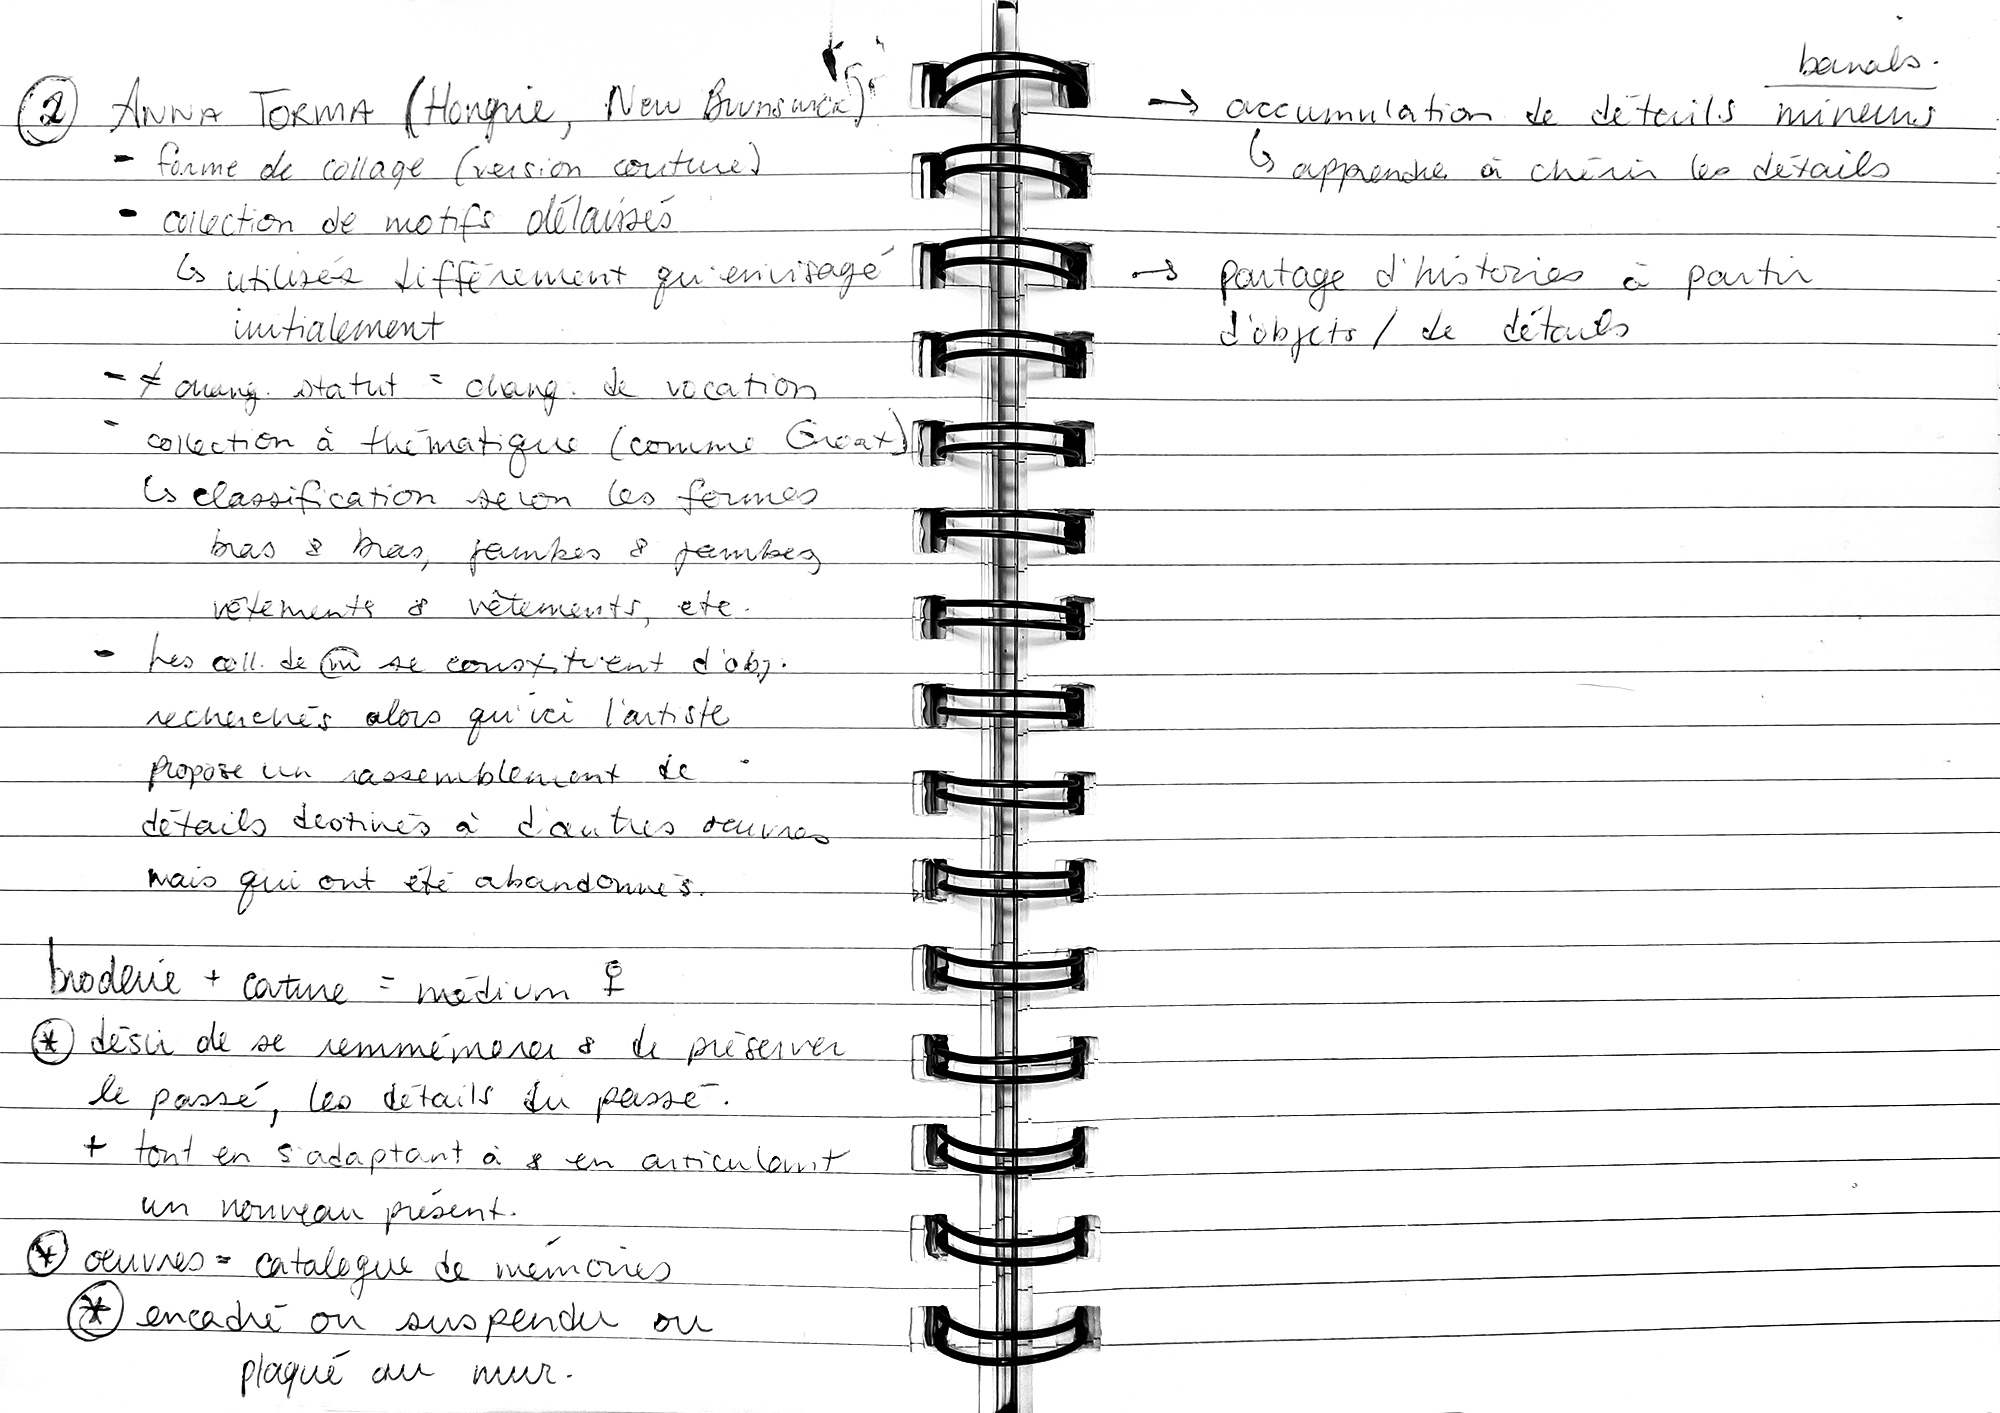 2 ANNA TORMA (Hongrie, New Brunswick)
- forme de collage (version couture)
- collection de motifs délaissés
↳ utilisés différement qu'envisagé
initialement
- ≠ chang. statut = chang. de vocation
- collection à thématique (comme Groat)
↳ classification selon les formes
bras & bras, jambes & jambes,
vêtements & vêtements, etc.
- Les coll. de m̄ se constituent d'obj.
recherchés alors qu'ici l'artiste
propose un rassemblement de
détails destinés à d'autres oeuvres
mais qui ont été abandonnés.
broderie + couture = médium ♀
* désir de se remmémorer & de préserver
le passé, les détails du passé.
+ tout en s'adaptant à & en articulant
un nouveau présent.
* oeuvres = catalogue de mémoires
* encadré ou suspendu ou
plaqué au mur.
banals.
→ accumulation de détails mineurs
↳ apprendre à chérir les détails
→ partage d'histoires à partir
d'objets / de détails